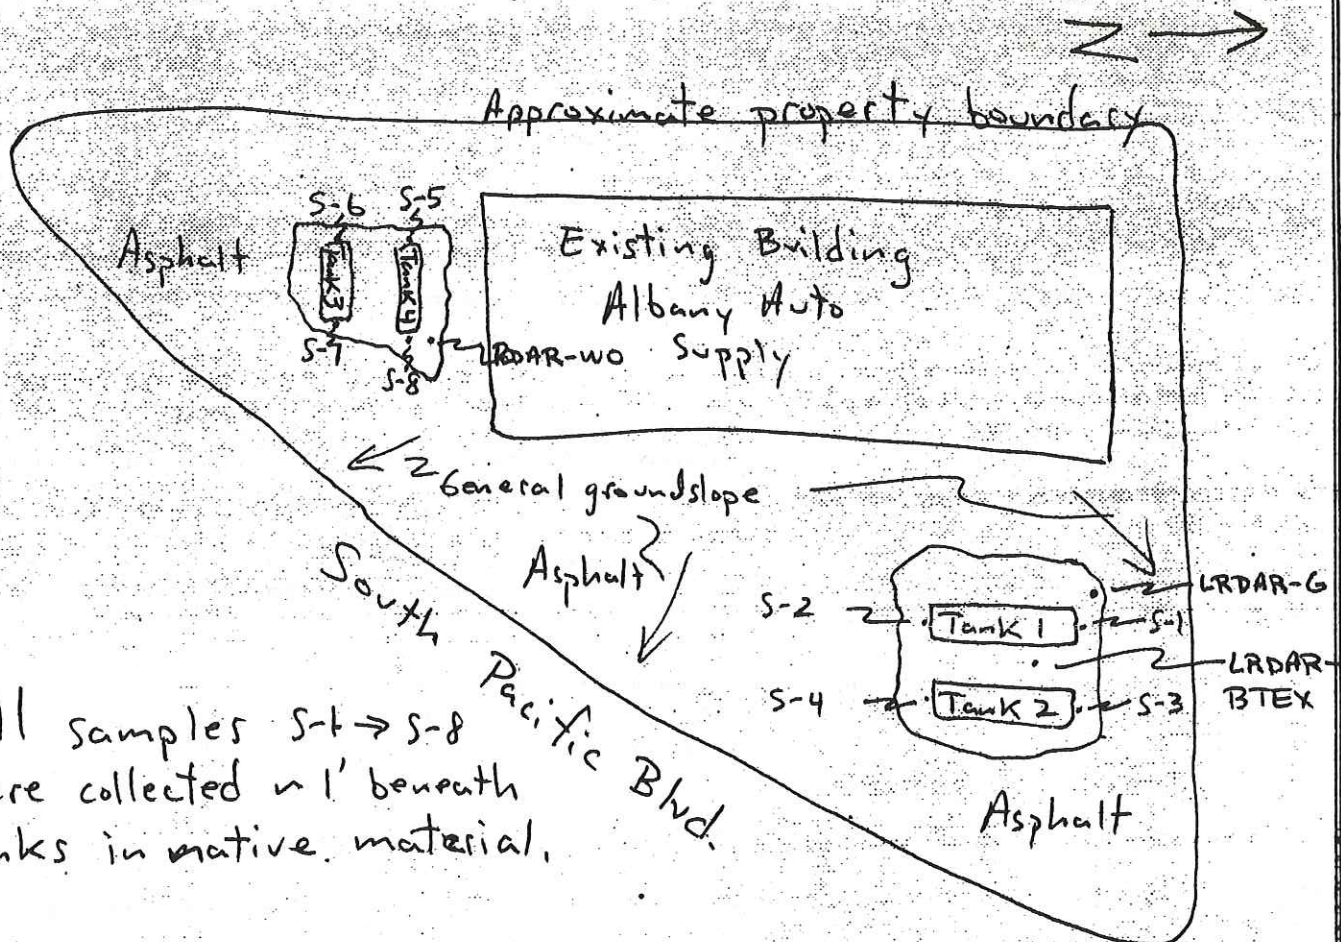 N
Approximate property boundary
S-6
S-5
Asphalt
Tank 3
Tank 4
S-7
S-8
LRDAR-WO
Existing Building
Albany Auto
Supply
General groundslope
Asphalt
South Pacific Blvd.
LRDAR-G
S-2
Tank 1
S-1
LRDAR-
BTEX
S-4
Tank 2
S-3
Asphalt
ll samples S-1 → S-8
re collected ~ 1' beneath
nks in native material.